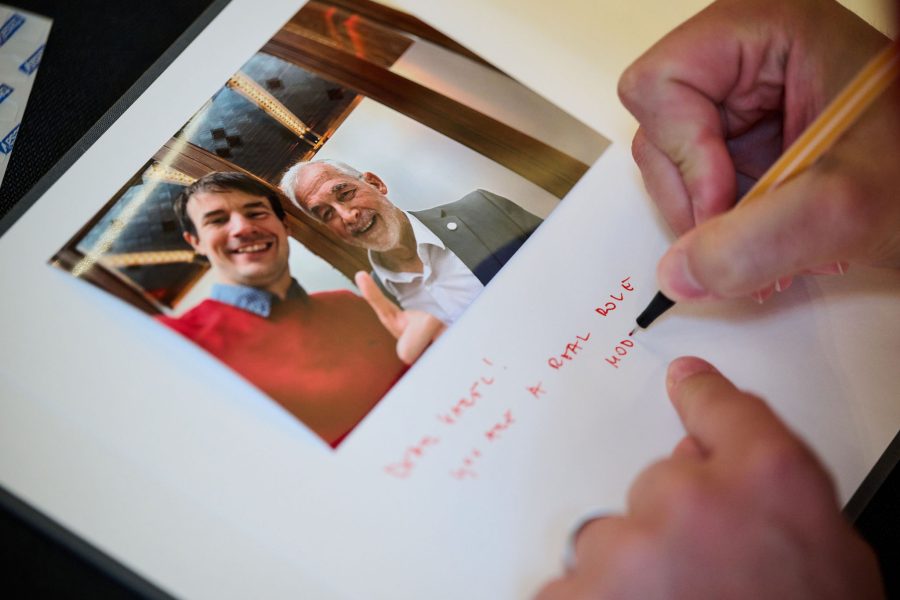 DEAR KAREL!
YOU ARE A REAL ROLE
MOD